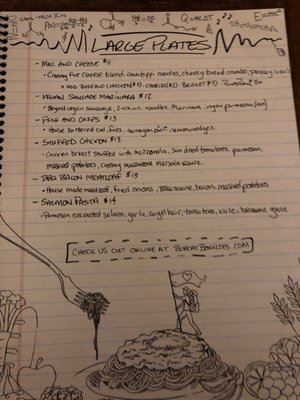 Q=mcΔT
E=mc²
LARGE PLATES
- MAC AND CHEESE $11
- Creamy five cheese blend, cavatappi noodles, cheesy bread crumbs, parsley
* ADD BUFFALO CHICKEN $ CHORIZO BRISKET
- VEGAN SAUSAGE MARINARA $12
• Beyond vegan sausage, zucchini noodles, Marinara, vegan parmesan
- FISH AND CHIPS $13
• House battered cod, fries, tarragon aioli, lemon wedges
- STUFFED CHICKEN $13
• Chicken breast stuffed with mozzarella, sun dried tomatoes, parmesan, mashed potatoes, creamy mushroom Marsala sauce
- BBQ BACON MEATLOAF $13
• House made meatloaf, fried onions, BBQ sauce, bacon, mashed potatoes
- SALMON PASTA $14
• Parmesan encrusted salmon, garlic, angel hair, tomatoes, kale, balsamic glaze
CHECK US OUT ONLINE AT BOBCATBONNIES.COM